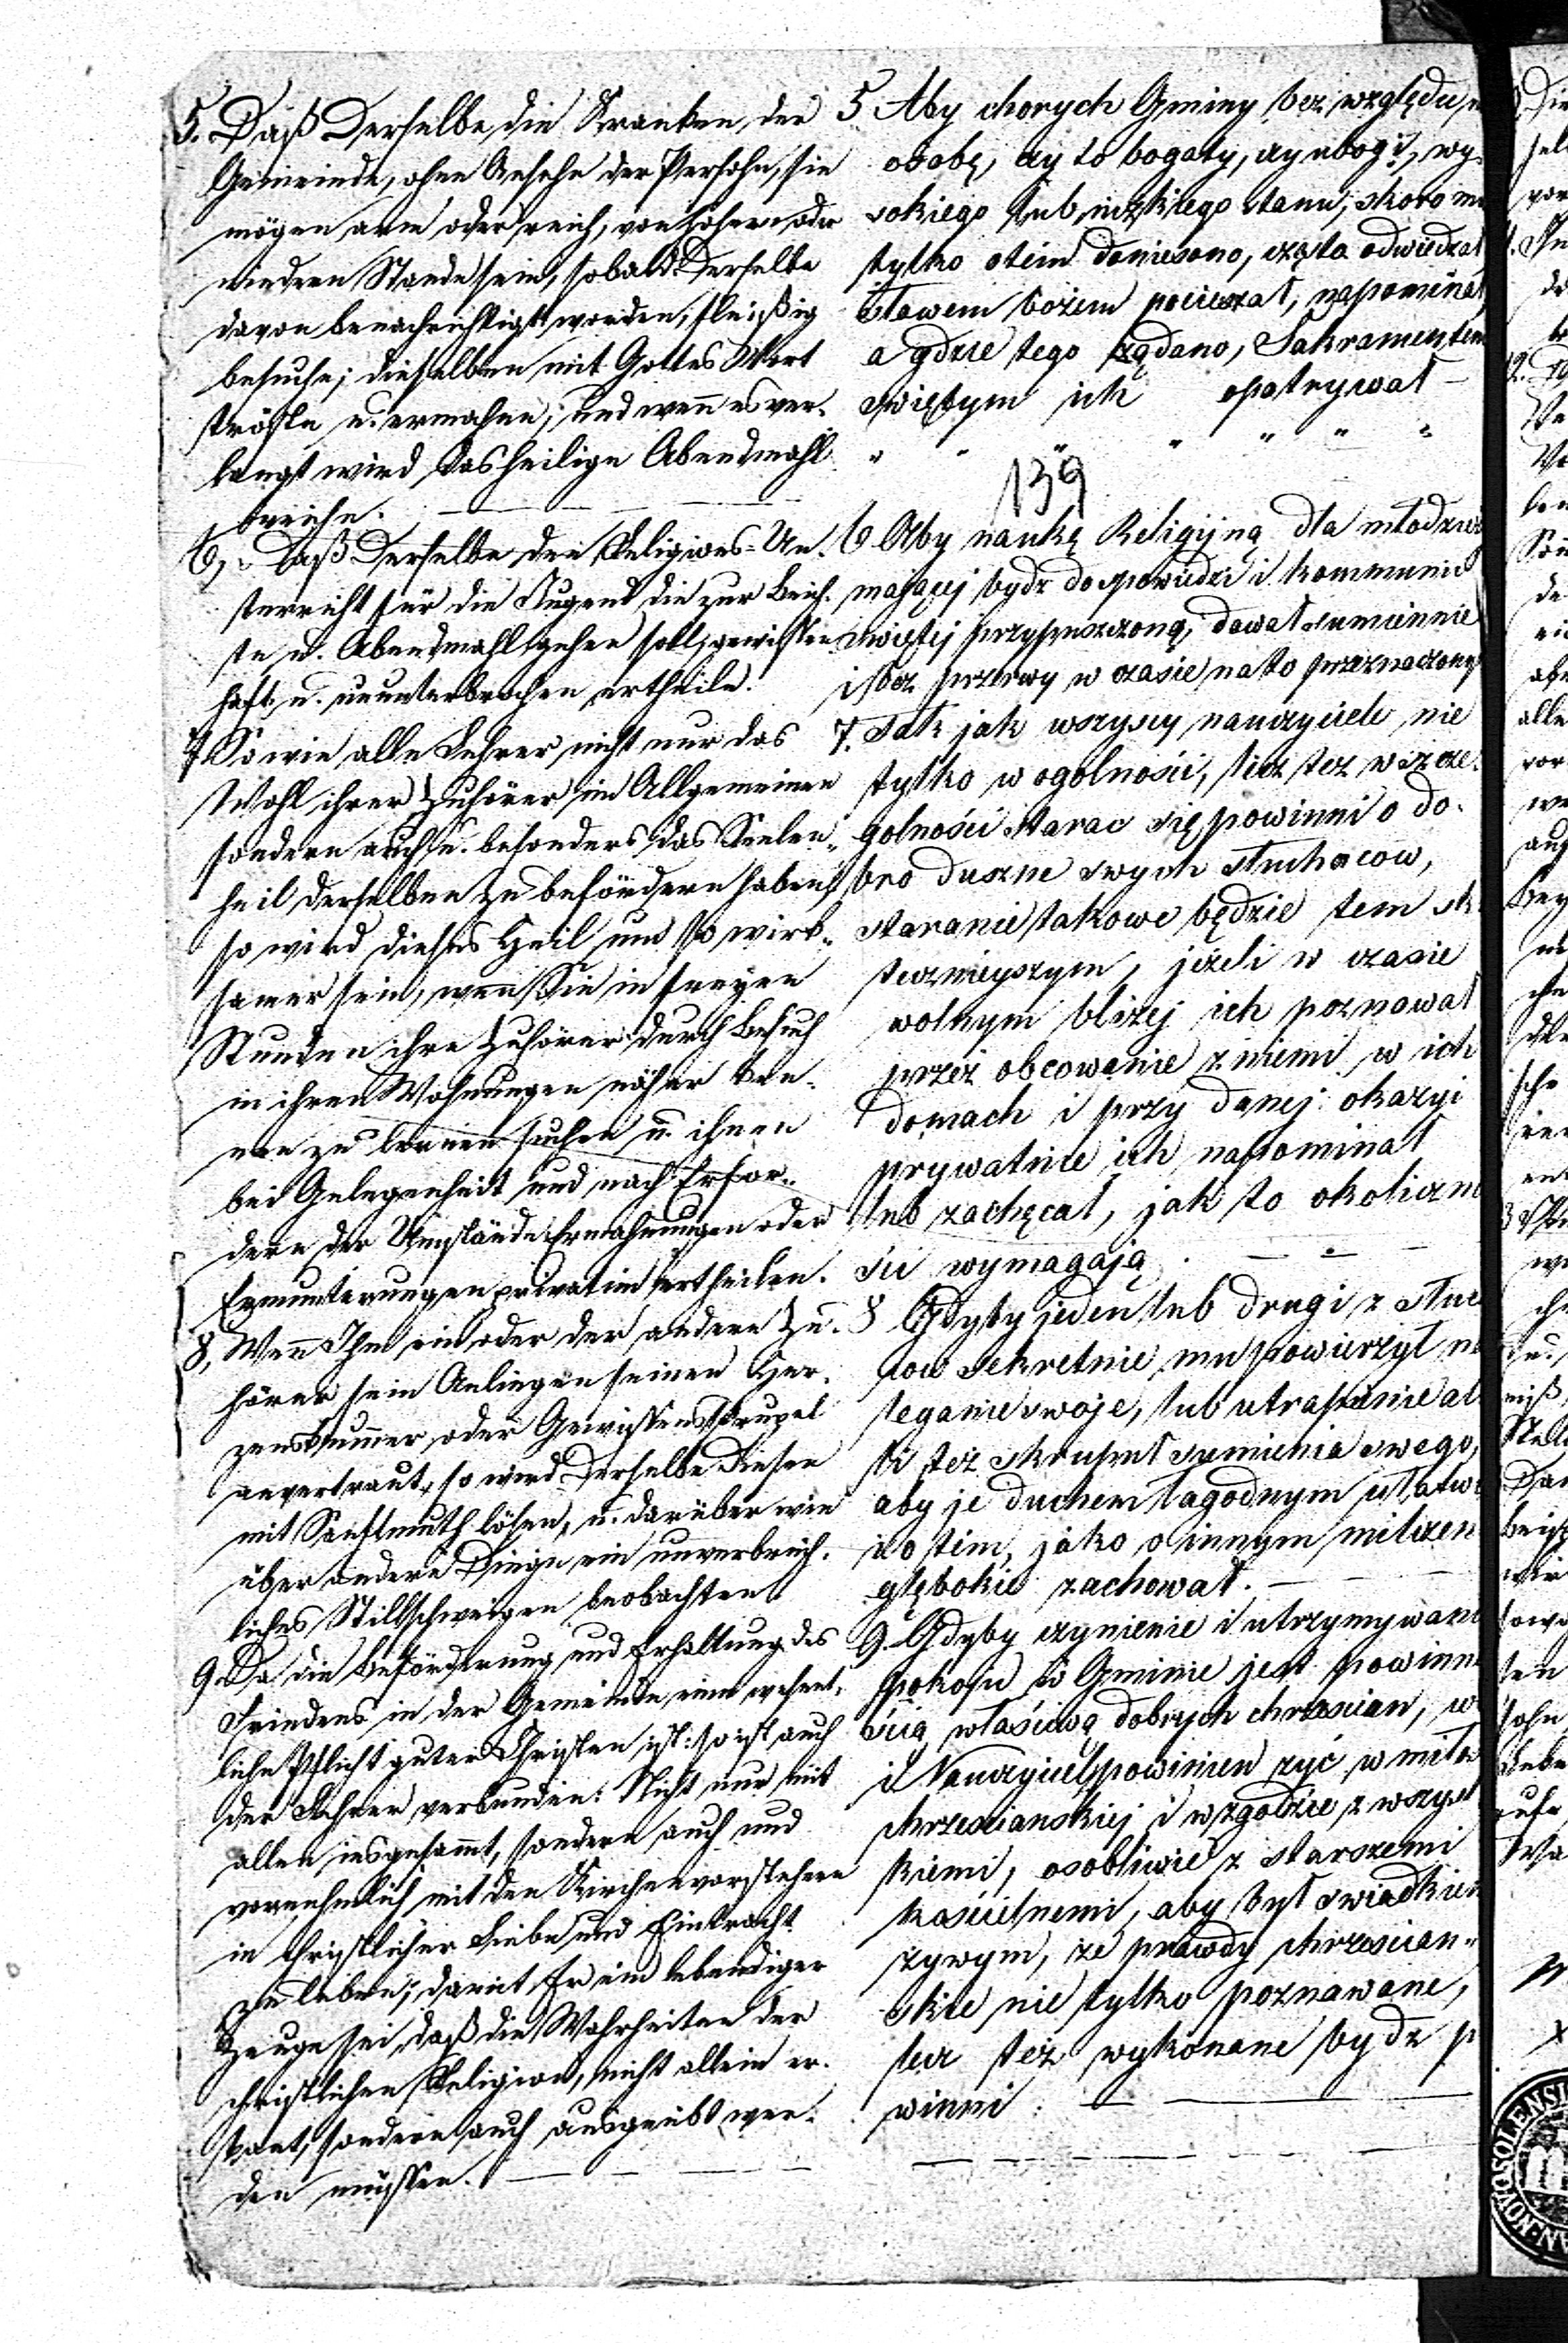 5. Daß Derselbe die Kranken der
Gemeinde, ohne Ansehn der Persohn, sie
mögen arm oder reich, von hohern oder
niedern Stande sein, sobald Derselbe
davon benachrichtigt worden, fleißig
besuche; dieselben mit Gottes Wort
tröste u. ermahne; und wenn es ver-
langt wird das heilige Abendmahl
reiche.
6, Daß Derselbe den Religions-Un-
terricht für die Jugend die zur Beich-
te u. Abendmahl gehen soll, gewissen
haft u. ununterbrochen ertheile.
7 So wie alle Lehrer nicht nur das
Wohl ihrer Zuhörer im Allgemeinen
sondern auch u. besonders das Seelen-
heil derselben zu befördern haben,
so wird dieses Heil um so wirk-
samer sein, wenn Sie in freyen
Stunden ihre Zuhörer durch Besuch
in ihren Wohnungen näher ken-
nen zu lernen suchen u. ihnen
bei Gelegenheit und nach Erfor-
dern der Umstände Ermahnungen oder
Ermunterungen privatim ertheilen.
8, Wenn Ihm ein oder der andere Zu-
hörer sein Anliegen seinen Her-
zenskummer oder Gewissensskrupel
anvertraut, so wird Derselbe diesen
mit Sanftmuth lösen, u. darüber wie
über andere Dinge ein unverbrüch-
liches Stillschweigen beobachten
9. Da die Beförderung und Erhaltung des
Friedens in der Gemeinde eine wesent-
liche Pflicht guter Christen ist: so ist auch
der Lehrer verbunden: Nicht nur mit
allen insgesammt, sondern auch und
vornehmlich mit den Kirchenvorstehern
in christlicher Liebe und Eintracht
zu leben; damit Er ein lebendiger
Zeuge sei, daß die Wahrheiten der
christlichen Religion, nicht allein er-
kant, sondern auch ausgeübt wer-
den müssen.
5 Aby chorych Gminy bez względu n
osobę, czy to bogaty, czy ubogi, wy-
sokiego lub nizkiego stanu, skoro mu
tylko otém doniesono, często odwiedzał
słowem bożem pocieszał, napominał
a gdzie tego żądano, Sakramentem
świętym ich opatrywał –
139
6 Aby naukę Religijną dla młodzie
mającej bydz do spowiedzi i kommunii
świętej przypuszczoną, dawał sumiennie
i bez przerwy w czasie na to przeznaczony
7. Tak jak wszyscy nauczyciele nie
tylko w ogolności, lecz tez w szcze-
golności starac się powinni o do-
bro duszne swych słuchacow,
staranie takowe będzie tem sk
tecznieyszym, jeżeli w czasie
wolnym bliżej ich poznował
przez obcowanie z niemi w ich
domach i przy danej okazyi
prywatnie ich napominał
lub zachęcał, jak to okoliczno
sci wymagają
8 Gdyby jeden lub drugi z słuc
cow sekretnie mu powierzył na
leganie swoje, lub utrapienie al
bo też skrupuł sumienia swego,
aby je duchem łagodnym ułatwi
i o tém, jako o innym milczen
głębokie zachował.
9. Gdyby czynienie i utrzymywani
pokoju w Gminie jest powinno
ścią właściwą dobrych chrzescian, w
i Nauczyciel powinien życ w miłos
chrzescianskiej i w zgodzie z wszyst
kiemi, osobliwie z starszemi
kościelnemi, aby był swiadkiem
zywym, że prawdy chrzescian-
skie nie tylko poznawane,
lecz też wykonane bydz p
winni